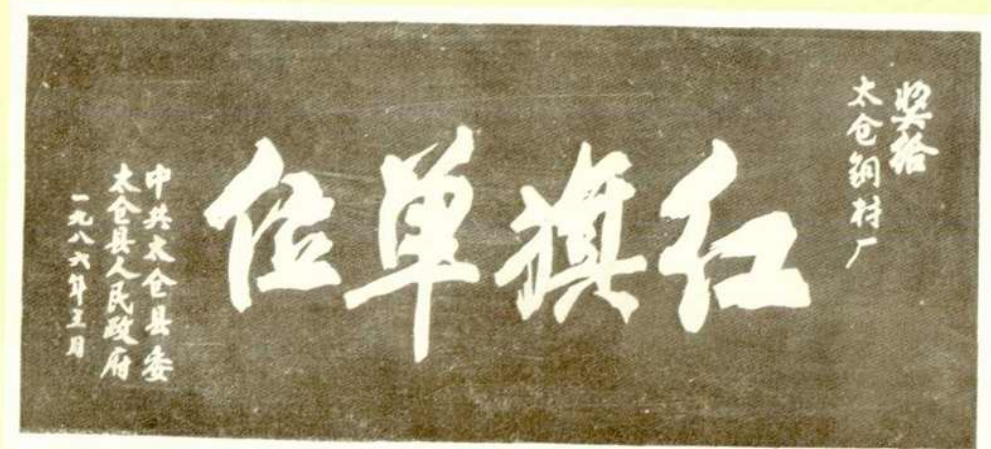 奖给
太仓铜材厂
红旗单位
中共太仓县委
太仓县人民政府
一九八六年三月